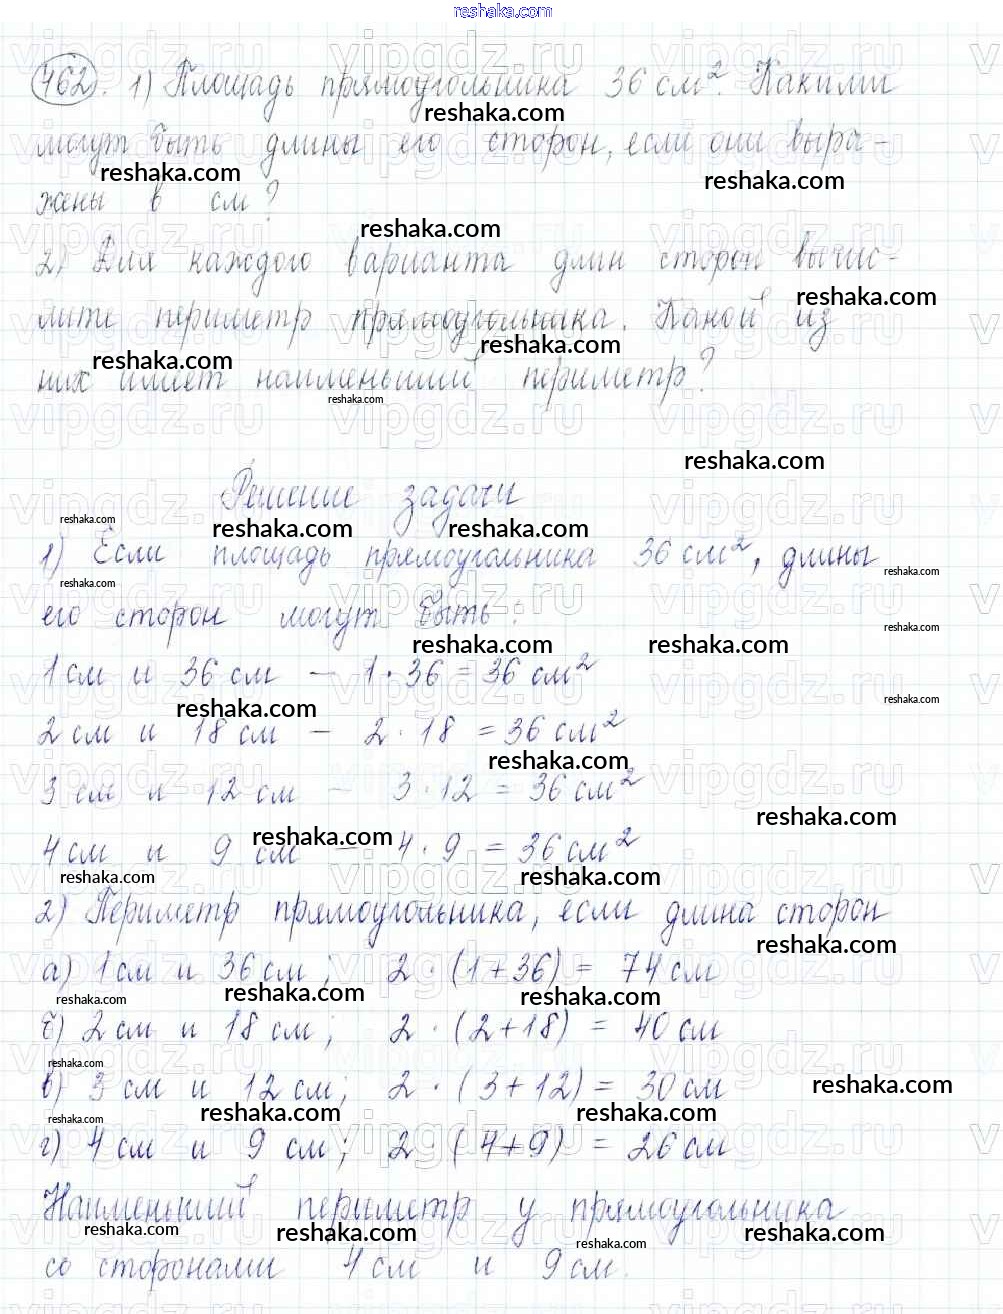 reshaka.com
462. 1) Площадь прямоугольника 36 см². Какими
могут быть длины его сторон, если они выра-
жены в см?
2) Для каждого варианта длин сторон вычис-
лите периметр прямоугольника. Какой из
них имеет наименьший периметр?
Решение задачи
1) Если площадь прямоугольника 36 см², длины
его сторон могут быть:
1 см и 36 см – 1 · 36 = 36 см²
2 см и 18 см – 2 · 18 = 36 см²
3 см и 12 см – 3 · 12 = 36 см²
4 см и 9 см – 4 · 9 = 36 см²
2) Периметр прямоугольника, если длина сторон
а) 1 см и 36 см; 2 · (1+36) = 74 см
б) 2 см и 18 см; 2 · (2+18) = 40 см
в) 3 см и 12 см; 2 · (3+12) = 30 см
г) 4 см и 9 см; 2 (4+9) = 26 см
Наименьший периметр у прямоугольника
со сторонами 4 см и 9 см.